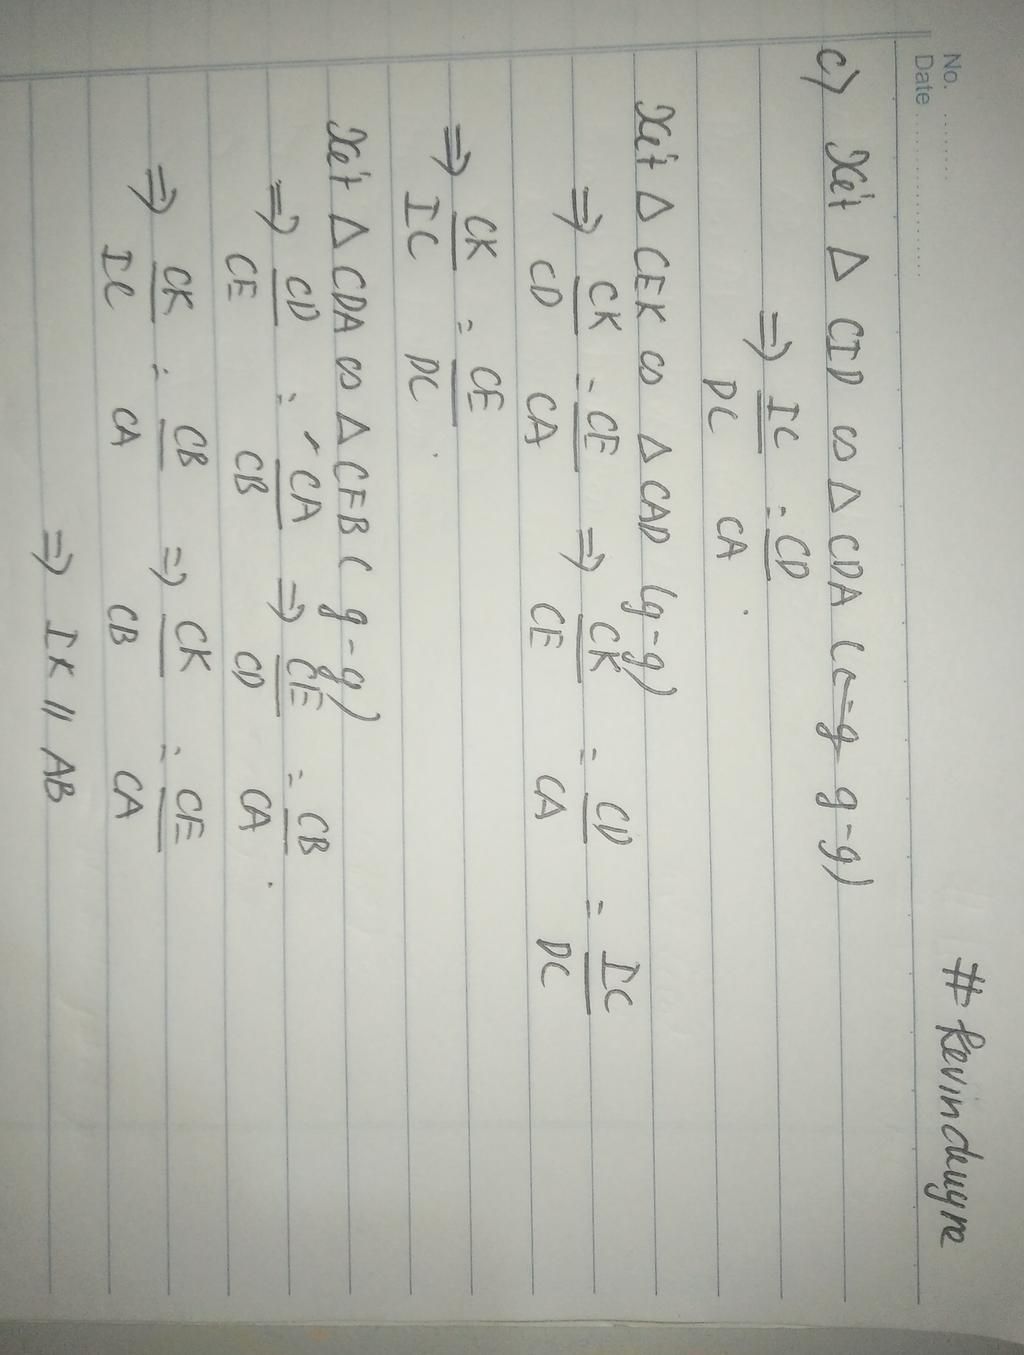 No. ..........
Date ....................
# Kevindeugre
c) Xét Δ CID ∽ Δ CDA ( c-g g-g)
⇒ IC/DC = CD/CA .
Xét Δ CEK ∽ Δ CAD (g-g)
⇒ CK/CD = CE/CA ⇒ CK/CE = CD/CA = IC/DC
⇒ CK/IC = CE/DC .
Xét Δ CDA ∽ Δ CEB ( g-g)
⇒ CD/CE = CA/CB ⇒ CE/CD = CB/CA .
⇒ CK/IC = CB/CA ⇒ CK/CB = CE/CA
⇒ IK // AB